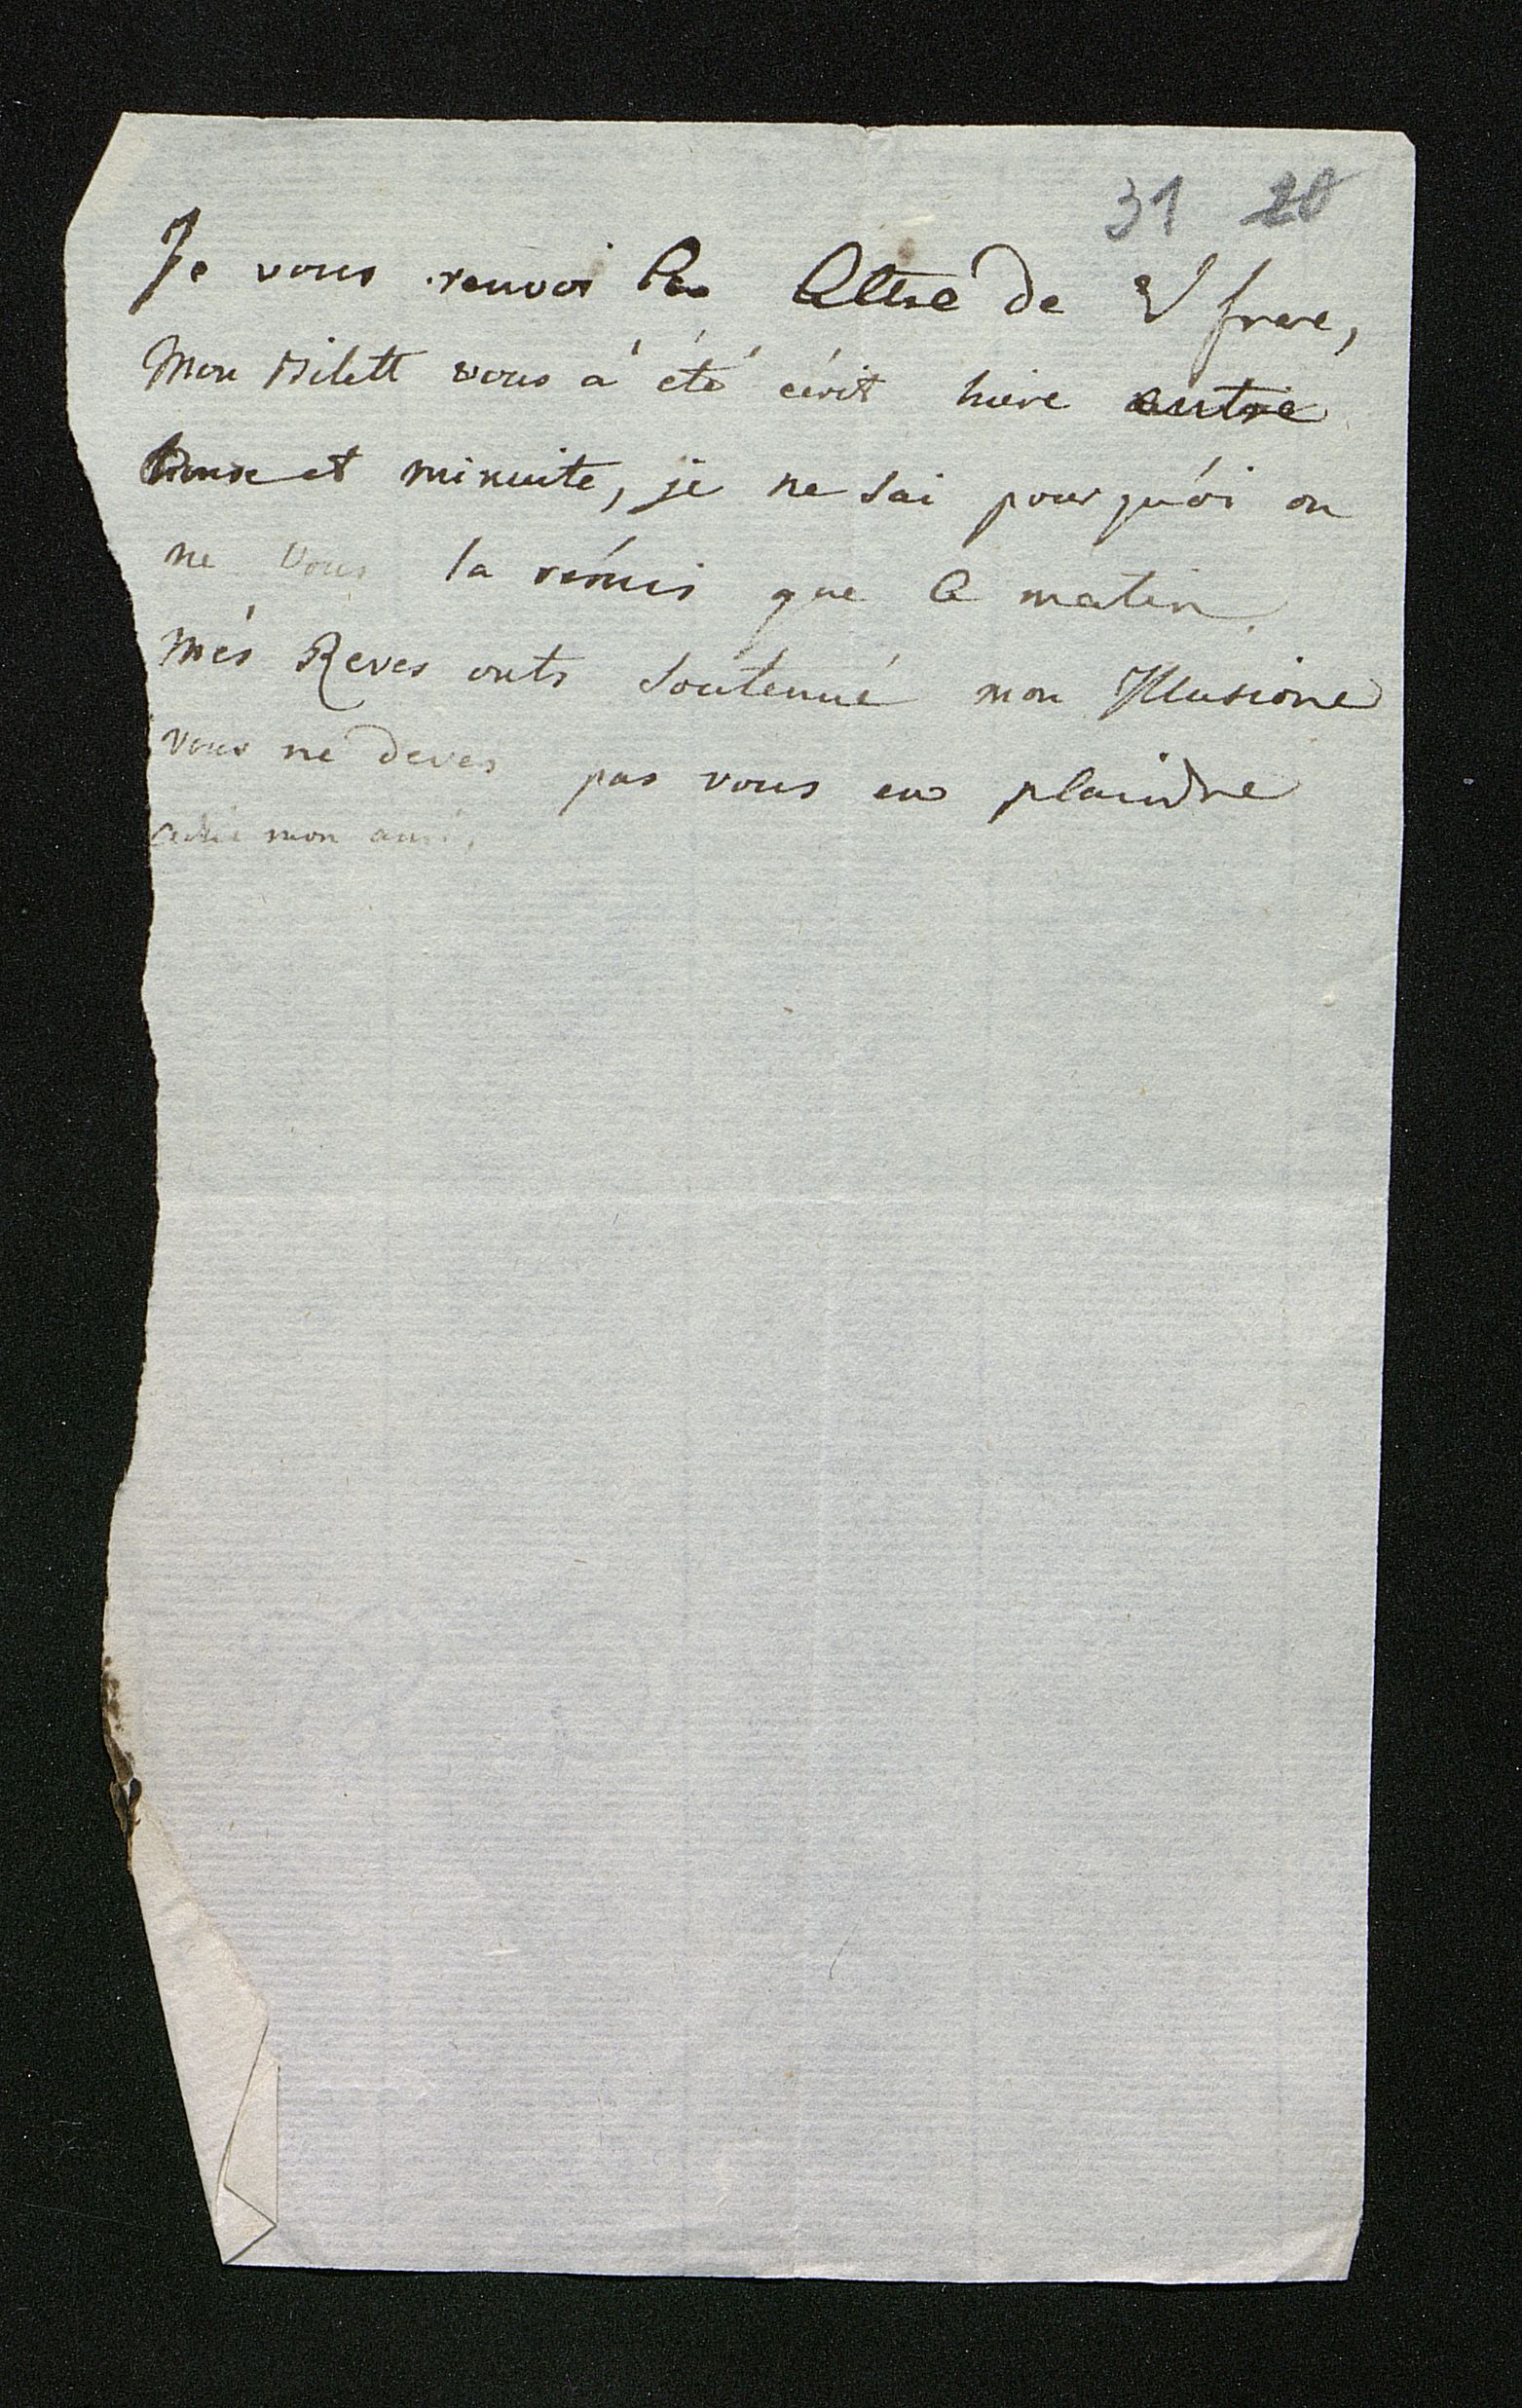 31 28
Je vous renvoi la lettre de V frere,
Mon Bilett vous á été écrit hiere entre
onze et minuite, je ne sai pourquói on
ne vous la rémis que le matin,
Més Reves onts soutenué mon Illusione
vous ne deves pas vous en plaindre
adie mon ami,